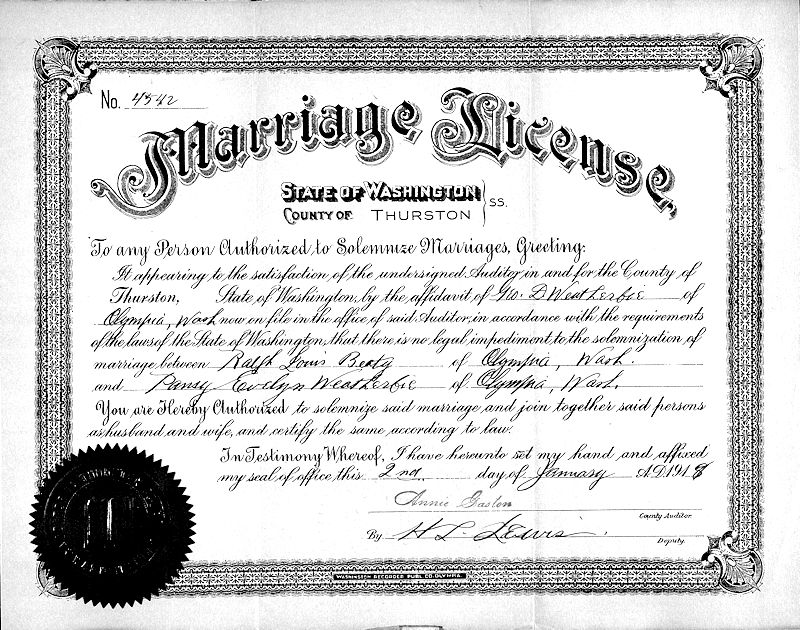 No. 4542
Marriage License
STATE OF WASHINGTON
COUNTY OF THURSTON } SS.
To any Person Authorized to Solemnize Marriages, Greeting:
It appearing to the satisfaction of the undersigned Auditor, in and for the County of
Thurston, State of Washington, by the affidavit of Geo. D Weatherbie of
Olympia, Wash now on file in the office of said Auditor, in accordance with the requirements
of the laws of the State of Washington, that there is no legal impediment to the solemnization of
marriage between Ralph Louis Beaty of Olympia, Wash.
and Pansy Evelyn Weatherbie of Olympia, Wash.
You are Hereby Authorized to solemnize said marriage and join together said persons
as husband and wife, and certify the same according to law.
In Testimony Whereof, I have hereunto set my hand and affixed
my seal of office this 2nd day of January A.D. 1918
Annie Gaston
County Auditor.
By H. L. Lewis.
Deputy.
WASHINGTON RECORDER PUBL. CO. OLYMPIA.